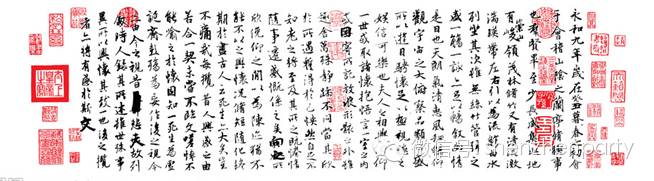 永和九年歲在癸丑暮春之初會
于會稽山陰之蘭亭脩稧事
也群賢畢至少長咸集此地
有峻領茂林脩竹又有清流激
湍暎帶左右引以為流觴曲水
列坐其次雖無絲竹管弦之
盛一觴一詠亦足以暢敘幽情
是日也天朗氣清惠風和暢仰
觀宇宙之大俯察品類之盛
所以遊目騁懷足以極視聽之
娛信可樂也夫人之相與俯仰
一世或取諸懷抱悟言一室之內
或因寄所託放浪形骸之外雖
趣舍萬殊靜躁不同當其欣
於所遇暫得於己怏然自足不
知老之將至及其所之既惓情
隨事遷感慨係之矣向之所
欣俛仰之閒以為陳跡猶不
能不以之興懷況脩短隨化終
期於盡古人云死生亦大矣豈
不痛哉每攬昔人興感之由
若合一契未嘗不臨文嗟悼不
能喻之於懷固知一死生為虛
誕齊彭殤為妄作後之視今
亦由今之視昔悲夫故列
敘時人錄其所述雖世殊事
異所以興懷其致一也後之攬
者亦將有感於斯文
微信号